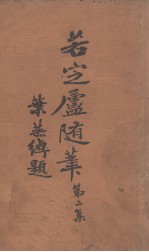 若定廬随筆
第二集
葉恭綽題